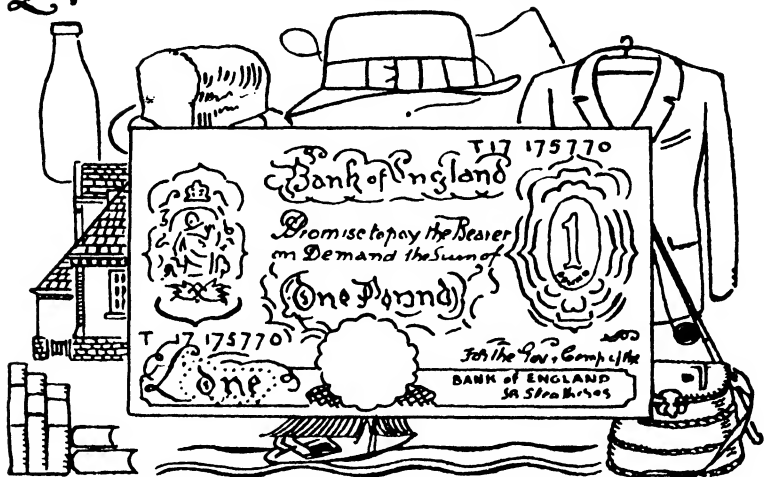 T17 175770
Bank of England
Promise to pay the Bearer
on Demand the Sum of
One Pound
1
T 17 175770
For the Gov. & Comp. of the
One
BANK of ENGLAND